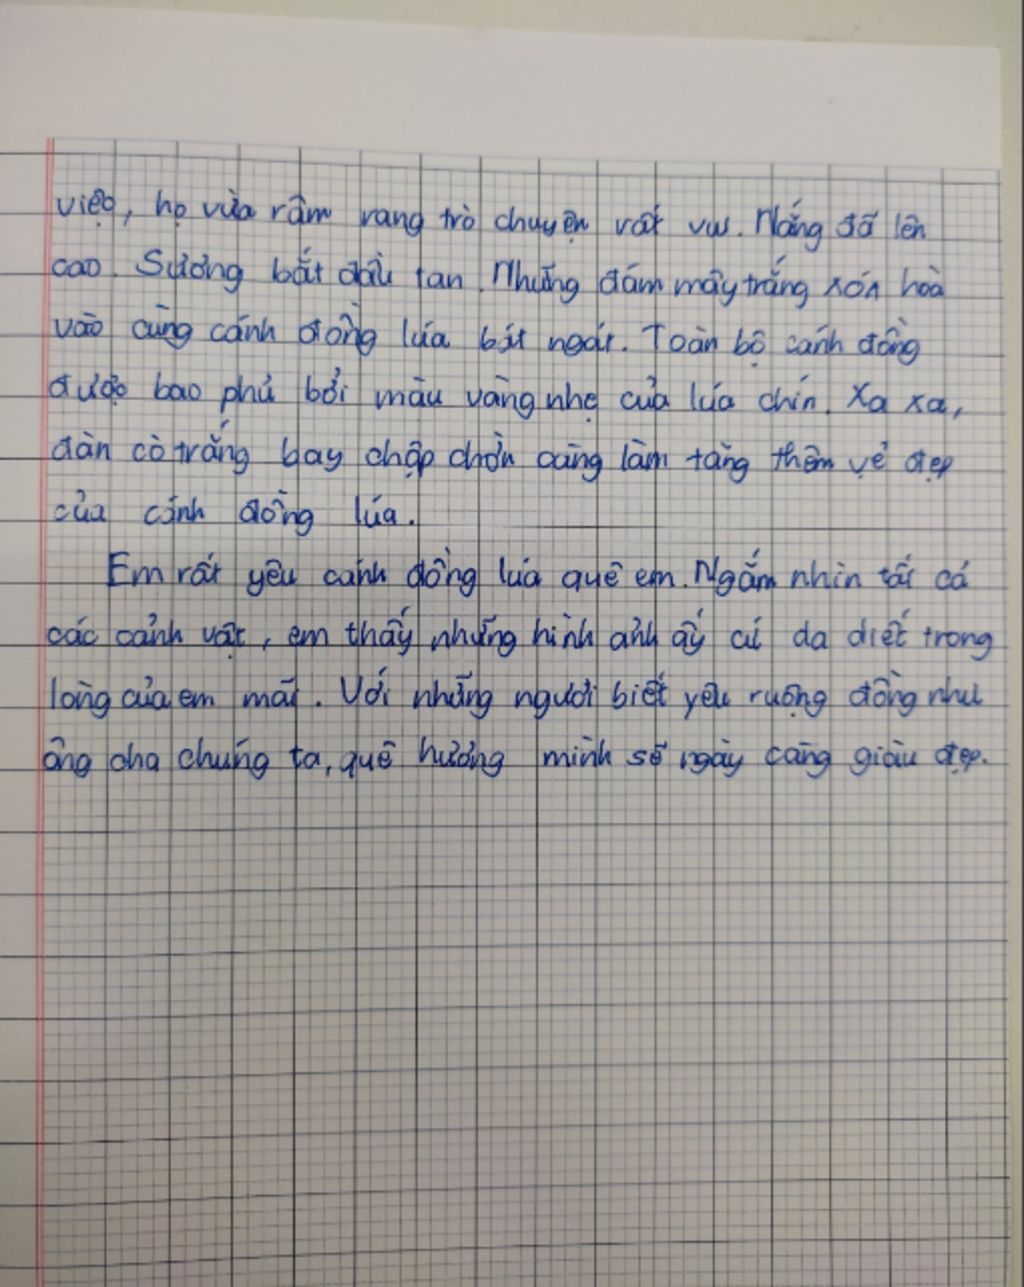 việc, họ vừa râm rang trò chuyện rất vui. Nắng đã lên
cao. Sương bắt đầu tan. Những đám mây trắng xón hoà
vào cùng cánh đồng lúa bát ngát. Toàn bộ cánh đồng
được bao phủ bởi màu vàng nhẹ của lúa chín. Xa xa,
đàn cò trắng bay chập chờn càng làm tăng thêm vẻ đẹp
của cánh đồng lúa.
Em rất yêu cánh đồng lúa quê em. Ngắm nhìn tất cả
các cảnh vật, em thấy những hình ảnh ấy cứ da diết trong
lòng của em mãi. Với những người biết yêu ruộng đồng như
ông cha chúng ta, quê hương mình sẽ ngày càng giàu đẹp.